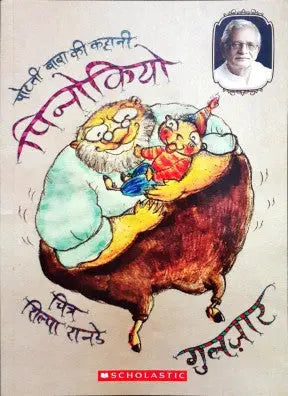 पोटली बाबा की कहानी
पिनोकियो
चित्र
शिल्पा रानडे
गुलज़ार
SCHOLASTIC